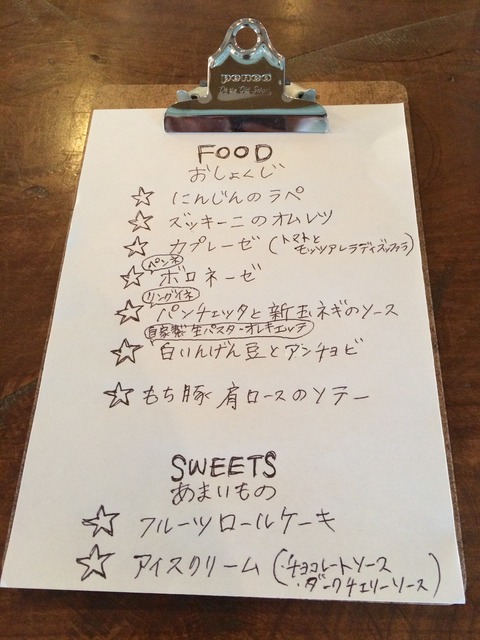 penco
FOOD
おしょくじ
☆ にんじんのラペ
☆ ズッキーニのオムレツ
☆ カプレーゼ (トマトと
モッツアレラディブッファラ)
ペンネ
☆ ボロネーゼ
リングイネ
☆ パンチェッタと新玉ネギのソース
自家製生パスタ・オレキエッテ
☆ 白いんげん豆とアンチョビ
☆ もち豚 肩ロースのソテー
SWEETS
あまいもの
☆ フルーツロールケーキ
☆ アイスクリーム (・チョコレートソース
・ダークチェリーソース)